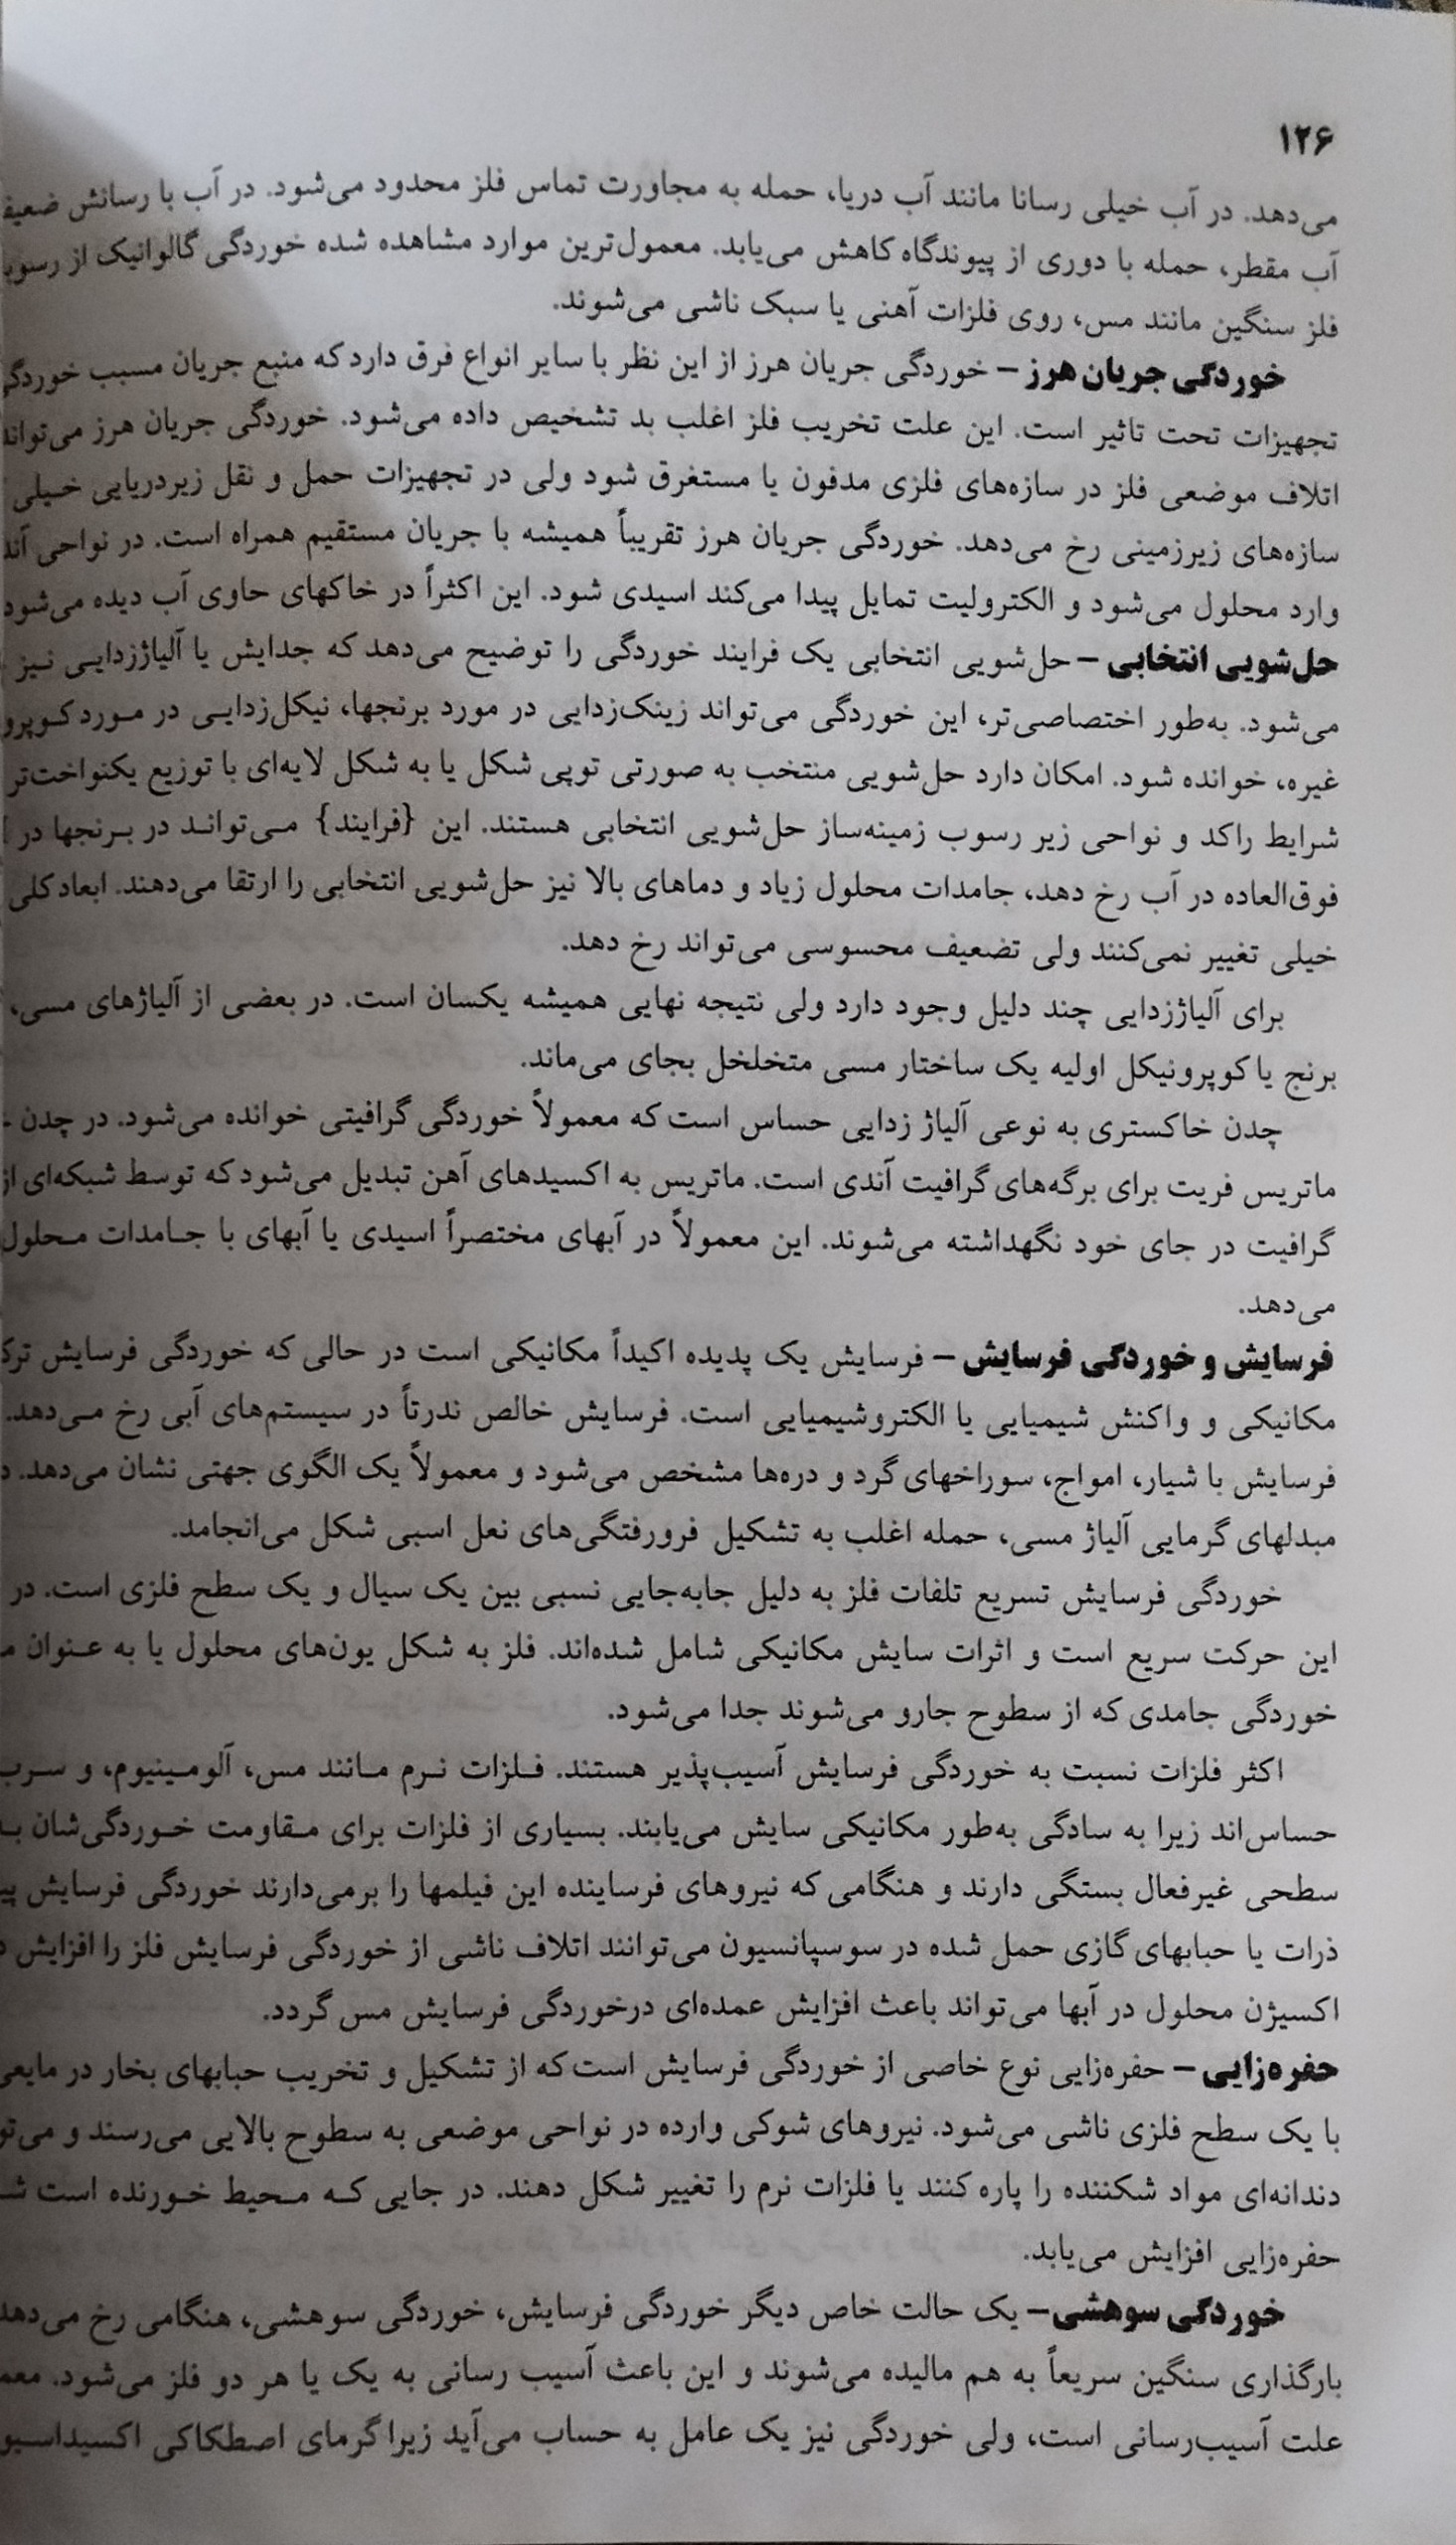 ۱۲۶
می‌دهد. در آب خیلی رسانا مانند آب دریا، حمله به مجاورت تماس فلز محدود می‌شود. در آب با رسانش
آب مقطر، حمله با دوری از پیوندگاه کاهش می‌یابد. معمول‌ترین موارد مشاهده شده خوردگی گالوانیک از
فلز سنگین مانند مس، روی فلزات آهنی یا سبک ناشی می‌شوند.
خوردگی جریان هرز – خوردگی جریان هرز از این نظر با سایر انواع فرق دارد که منبع جریان مسبب
تجهیزات تحت تاثیر است. این علت تخریب فلز اغلب بد تشخیص داده می‌شود. خوردگی جریان هرز
اتلاف موضعی فلز در سازه‌های فلزی مدفون یا مستغرق شود ولی در تجهیزات حمل و نقل زیردریایی خیلی
سازه‌های زیرزمینی رخ می‌دهد. خوردگی جریان هرز تقریباً همیشه با جریان مستقیم همراه است. در نواحی
وارد محلول می‌شود و الکترولیت تمایل پیدا می‌کند اسیدی شود. این اکثراً در خاکهای حاوی آب دیده می‌شود
حل‌شویی انتخابی – حل‌شویی انتخابی یک فرایند خوردگی را توضیح می‌دهد که جدایش یا آلیاژزدایی نیز
می‌شود. به‌طور اختصاصی‌تر، این خوردگی می‌تواند زینک‌زدایی در مورد برنجها، نیکل‌زدایی در مورد
غیره، خوانده شود. امکان دارد حل‌شویی منتخب به صورتی توپی شکل یا به شکل لایه‌ای با توزیع یکنواخت‌تر
شرایط راکد و نواحی زیر رسوب زمینه‌ساز حل‌شویی انتخابی هستند. این {فرایند} می‌تواند در برنجها در
فوق‌العاده در آب رخ دهد، جامدات محلول زیاد و دماهای بالا نیز حل‌شویی انتخابی را ارتقا می‌دهند. ابعاد کلی
خیلی تغییر نمی‌کنند ولی تضعیف محسوسی می‌تواند رخ دهد.
برای آلیاژزدایی چند دلیل وجود دارد ولی نتیجه نهایی همیشه یکسان است. در بعضی از آلیاژهای مسی،
برنج یا کوپرونیکل اولیه یک ساختار مسی متخلخل بجای می‌ماند.
چدن خاکستری به نوعی آلیاژ زدایی حساس است که معمولاً خوردگی گرافیتی خوانده می‌شود. در چدن
ماتریس فریت برای برگه‌های گرافیت آندی است. ماتریس به اکسیدهای آهن تبدیل می‌شود که توسط شبکه‌ای از
گرافیت در جای خود نگهداشته می‌شوند. این معمولاً در آبهای مختصراً اسیدی یا آبهای با جامدات محلول
می‌دهد.
فرسایش و خوردگی فرسایش – فرسایش یک پدیده اکیداً مکانیکی است در حالی که خوردگی فرسایش
مکانیکی و واکنش شیمیایی یا الکتروشیمیایی است. فرسایش خالص ندرتاً در سیستم‌های آبی رخ می‌دهد.
فرسایش با شیار، امواج، سوراخهای گرد و دره‌ها مشخص می‌شود و معمولاً یک الگوی جهتی نشان می‌دهد.
مبدلهای گرمایی آلیاژ مسی، حمله اغلب به تشکیل فرورفتگی‌های نعل اسبی شکل می‌انجامد.
خوردگی فرسایش تسریع تلفات فلز به دلیل جابه‌جایی نسبی بین یک سیال و یک سطح فلزی است. در
این حرکت سریع است و اثرات سایش مکانیکی شامل شده‌اند. فلز به شکل یون‌های محلول یا به عنوان
خوردگی جامدی که از سطوح جارو می‌شوند جدا می‌شود.
اکثر فلزات نسبت به خوردگی فرسایش آسیب‌پذیر هستند. فلزات نرم مانند مس، آلومینیوم، و سرب
حساس‌اند زیرا به سادگی به‌طور مکانیکی سایش می‌یابند. بسیاری از فلزات برای مقاومت خوردگی‌شان
سطحی غیرفعال بستگی دارند و هنگامی که نیروهای فرساینده این فیلمها را برمی‌دارند خوردگی فرسایش
ذرات یا حبابهای گازی حمل شده در سوسپانسیون می‌توانند اتلاف ناشی از خوردگی فرسایش فلز را افزایش
اکسیژن محلول در آبها می‌تواند باعث افزایش عمده‌ای درخوردگی فرسایش مس گردد.
حفره‌زایی – حفره‌زایی نوع خاصی از خوردگی فرسایش است که از تشکیل و تخریب حبابهای بخار در
با یک سطح فلزی ناشی می‌شود. نیروهای شوکی وارده در نواحی موضعی به سطوح بالایی می‌رسند و
دندانه‌ای مواد شکننده را پاره کنند یا فلزات نرم را تغییر شکل دهند. در جایی که محیط خورنده است
حفره‌زایی افزایش می‌یابد.
خوردگی سوهشی– یک حالت خاص دیگر خوردگی فرسایش، خوردگی سوهشی، هنگامی رخ می‌دهد
بارگذاری سنگین سریعاً به هم مالیده می‌شوند و این باعث آسیب رسانی به یک یا هر دو فلز می‌شود.
علت آسیب‌رسانی است، ولی خوردگی نیز یک عامل به حساب می‌آید زیرا گرمای اصطکاکی